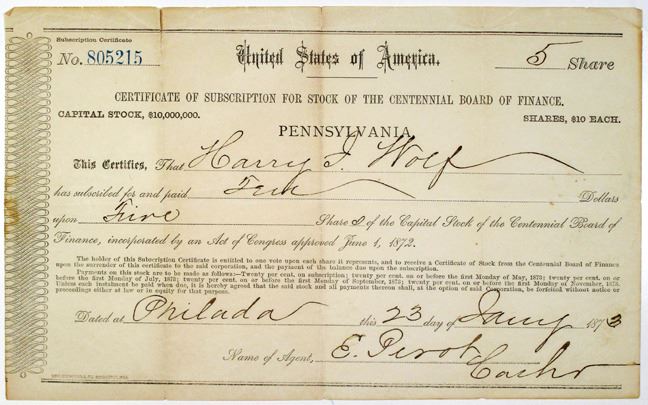 Subscription Certificate
No. 805215
United States of America.
5 Share
CERTIFICATE OF SUBSCRIPTION FOR STOCK OF THE CENTENNIAL BOARD OF FINANCE.
CAPITAL STOCK, $10,000,000.
SHARES, $10 EACH.
PENNSYLVANIA
This Certifies, That Harry I. Wolf
has subscribed for and paid Ten Dollars
upon Five Share s of the Capital Stock of the Centennial Board of
Finance, incorporated by an Act of Congress approved June 1, 1872.
The holder of this Subscription Certificate is entitled to one vote upon each share it represents, and to receive a Certificate of Stock from the Centennial Board of Finance
upon the surrender of this certificate to the said corporation, and the payment of the balance due upon the subscription.
Payments on this stock are to be made as follows:—Twenty per cent. on subscription; twenty per cent. on or before the first Monday of May, 1873; twenty per cent. on or
before the first Monday of July, 1873; twenty per cent. on or before the first Monday of September, 1873; twenty per cent. on or before the first Monday of November, 1873.
Unless each instalment be paid when due, it is hereby agreed that the said stock and all payments thereon shall, at the option of said Corporation, be forfeited without notice or
proceedings either at law or in equity for that purpose.
Dated at Philada this 23 day of Jany 1873
Name of Agent, E. Perot
Cashr